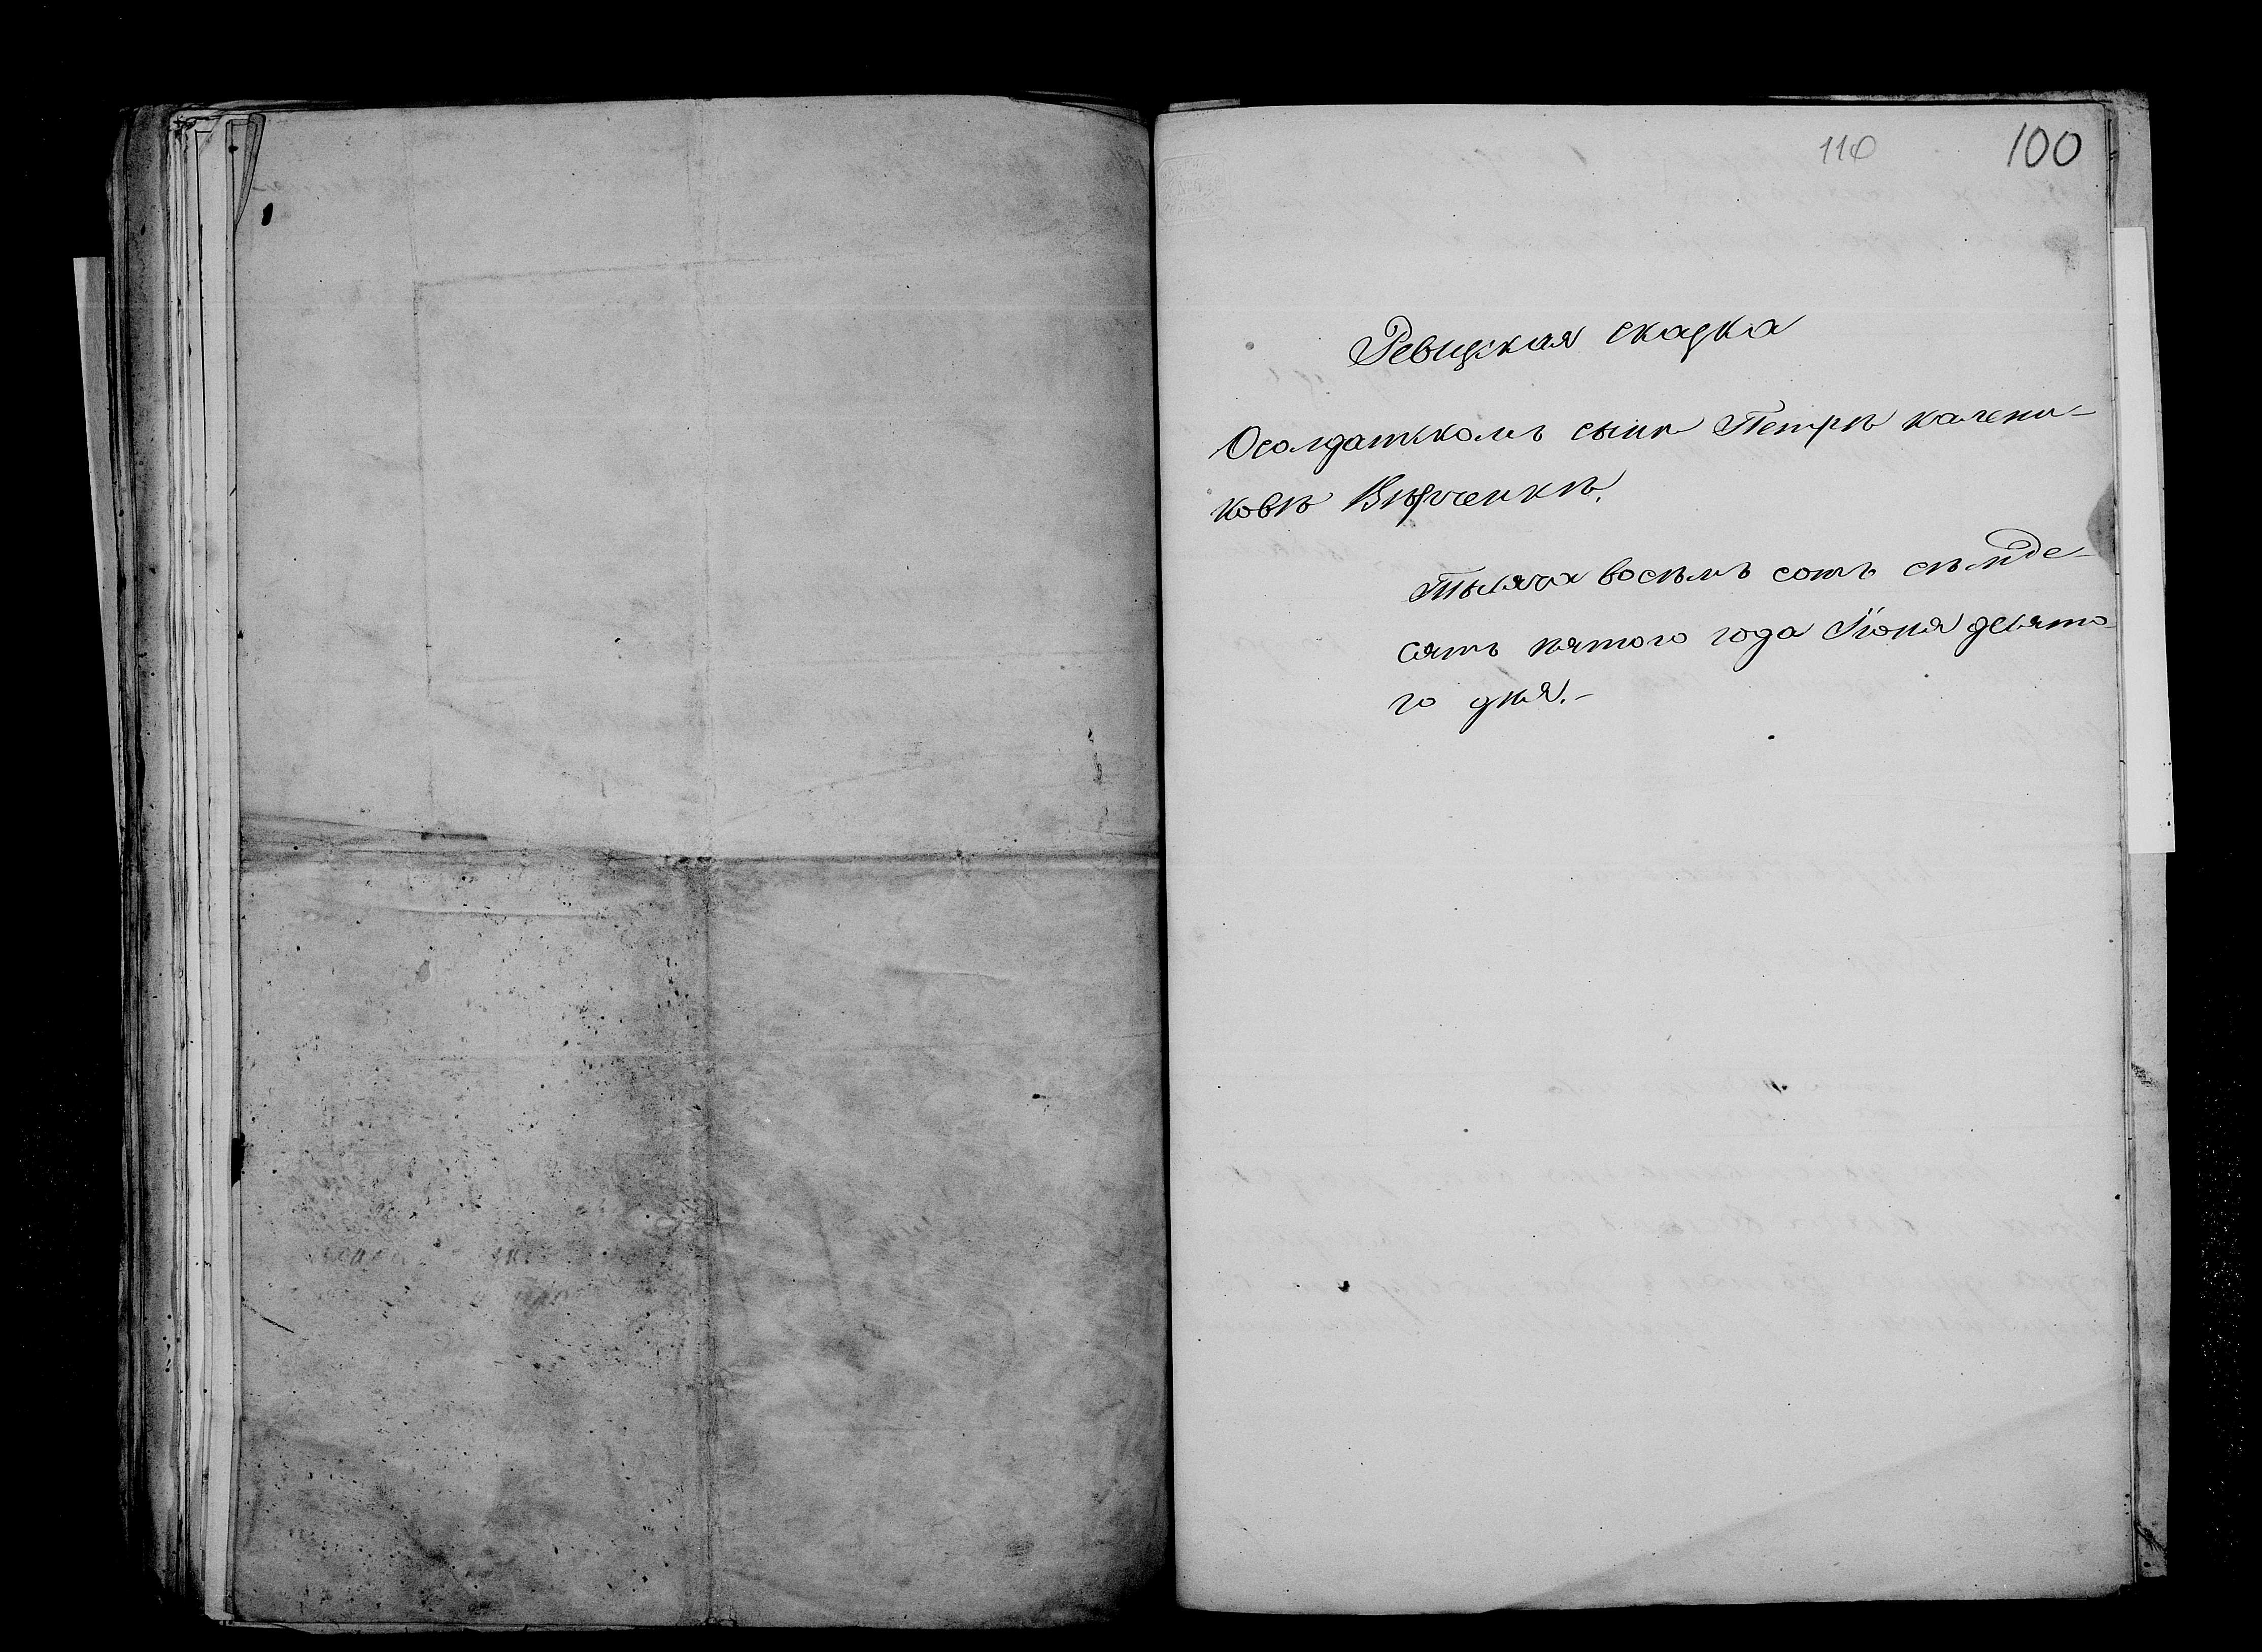 110 100
Ревизская сказка
Осолдатскомъ сынѣ Петрѣ калени-
ковѣ
Тысяча восѣмъ сотъ сѣмде-
сятъ пятого года Іюня девято
го дня.-